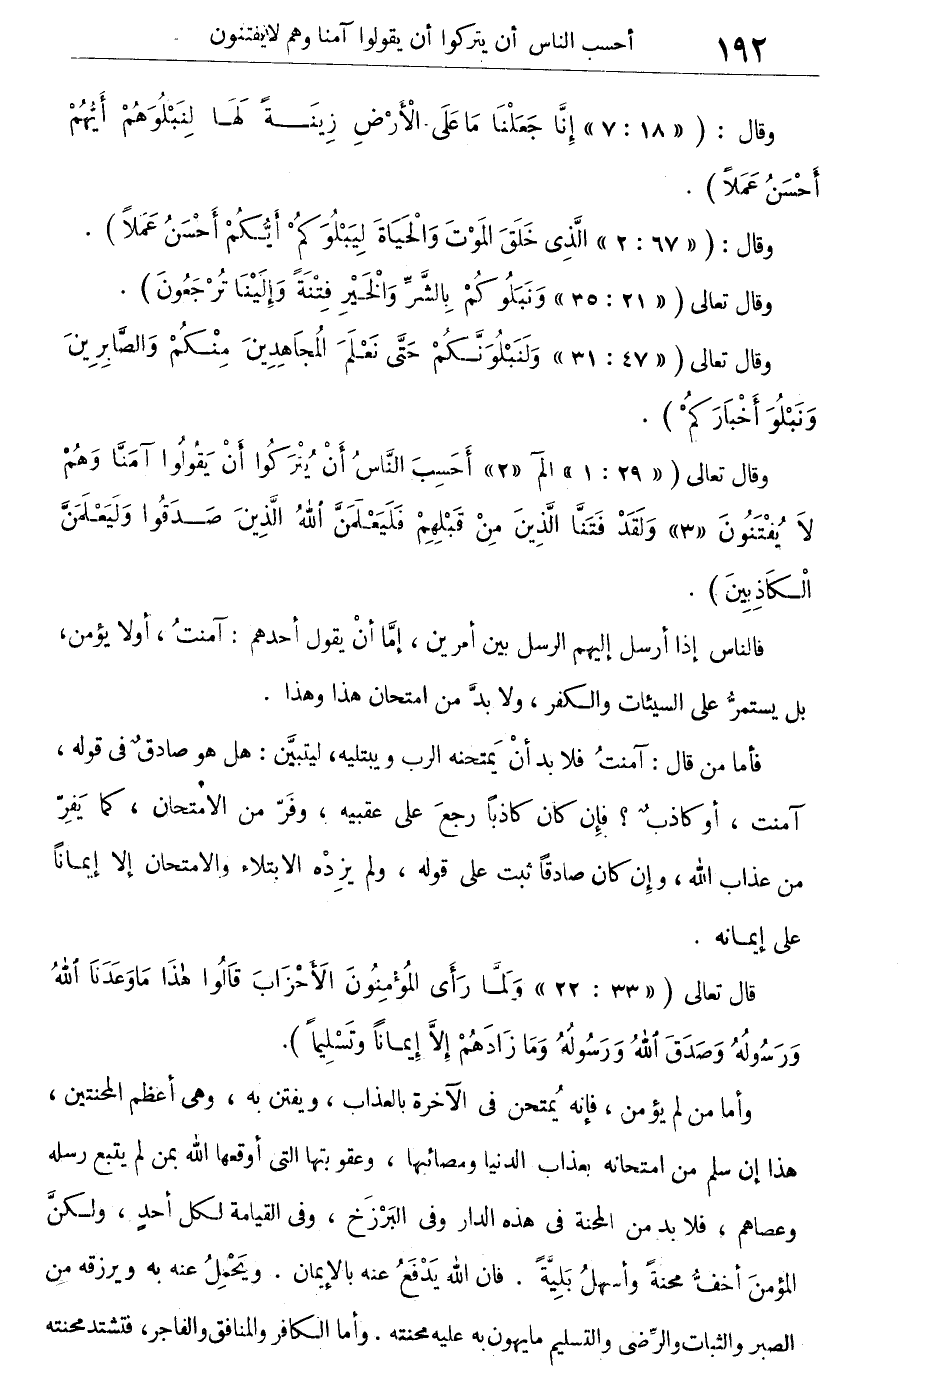 ١٩٢ أحسب الناس أن يتركوا أن يقولوا آمنا وهم لا يفتنون
وقال : ( « ١٨ : ٧ » إِنَّا جَعَلْنَا مَا عَلَى الْأَرْضِ زِينَةً لَهَا لِنَبْلُوَهُمْ أَيُّهُمْ
أَحْسَنُ عَمَلاً ) .
وقال : ( « ٦٧ : ٢ » الَّذِى خَلَقَ المَوْتَ وَالْحَيَاةَ لِيَبْلُوَكُمْ أَيُّكُمْ أَحْسَنُ عَمَلاً ) .
وقال تعالى ( « ٢١ : ٣٥ » وَنَبْلُوكُمْ بِالشَّرِّ وَالْخَيْرِ فِتْنَةً وَإِلَيْنَا تُرْجَعُونَ ) .
وقال تعالى ( « ٤٧ : ٣١ » وَلَنَبْلُوَنَّكُمْ حَتَّى نَعْلَمَ المُجَاهِدِينَ مِنْكُمْ وَالصَّابِرِينَ
وَنَبْلُوَ أَخْبَارَكُمْ ) .
وقال تعالى ( « ٢٩ : ١ » الٓمٓ «٢» أَحَسِبَ النَّاسُ أَنْ يُتْرَكُوا أَنْ يَقُولُوا آمَنَّا وَهُمْ
لاَ يُفْتَنُونَ «٣» وَلَقَدْ فَتَنَّا الَّذِينَ مِنْ قَبْلِهِمْ فَلَيَعْلَمَنَّ اللهُ الَّذِينَ صَدَقُوا وَلَيَعْلَمَنَّ
الْكَاذِبِينَ ) .
فالناس إذا أرسل إليهم الرسل بين أمرين ، إمَّا أنْ يقول أحدهم : آمنتُ ، أولا يؤمن،
بل يستمرُّ على السيئات والكفر ، ولا بدَّ من امتحان هذا وهذا .
فأما من قال : آمنتُ فلا بد أنْ يَمتحنه الرب ويبتليه، ليتبيَّن : هل هو صادقٌ فى قوله ،
آمنت ، أو كاذبٌ ؟ فإِن كان كاذباً رجعَ على عقبيه ، وفَرّ من الامْتحان ، كما يَفِرّ
من عذاب الله ، وإن كان صادقاً ثبت على قوله ، ولم يزِدْه الابتلاء والامتحان إلا إيماناً
على إيمانه .
قال تعالى ( « ٣٣ : ٢٢ » وَلَمَّا رَأَى المُؤْمِنُونَ الْأَحْزَابَ قَالُوا هٰذَا مَا وَعَدَنَا اللهُ
وَرَسُولُهُ وَصَدَقَ اللهُ وَرَسُولُهُ وَمَا زَادَهُمْ إِلاَّ إِيمَاناً وَتَسْلِيماً ).
وأما من لم يؤمن ، فإنه يُمتحن فى الآخرة بالعذاب ، ويفتن به ، وهى أعظم المحنتين ،
هذا إن سلم من امتحانه بعذاب الدنيا ومصائبها ، وعقوبتها التى أوقعها الله بمن لم يتبع رسله
وعصاهم ، فلا بد من المحنة فى هذه الدار وفى البَرْزَخ ، وفى القيامة لكل أحدٍ ، ولكنَّ
المؤمنَ أخفُّ محنةً وأسهلُ بَلِيَّةً . فان الله يَدْفَعُ عنه بالإيمان . ويَحْمِلُ عنه به ويرزقه من
الصبر والثبات والرِّضى والتسليم مايهون به عليه محنته . وأما الكافر والمنافق والفاجر، فتشتد محنته